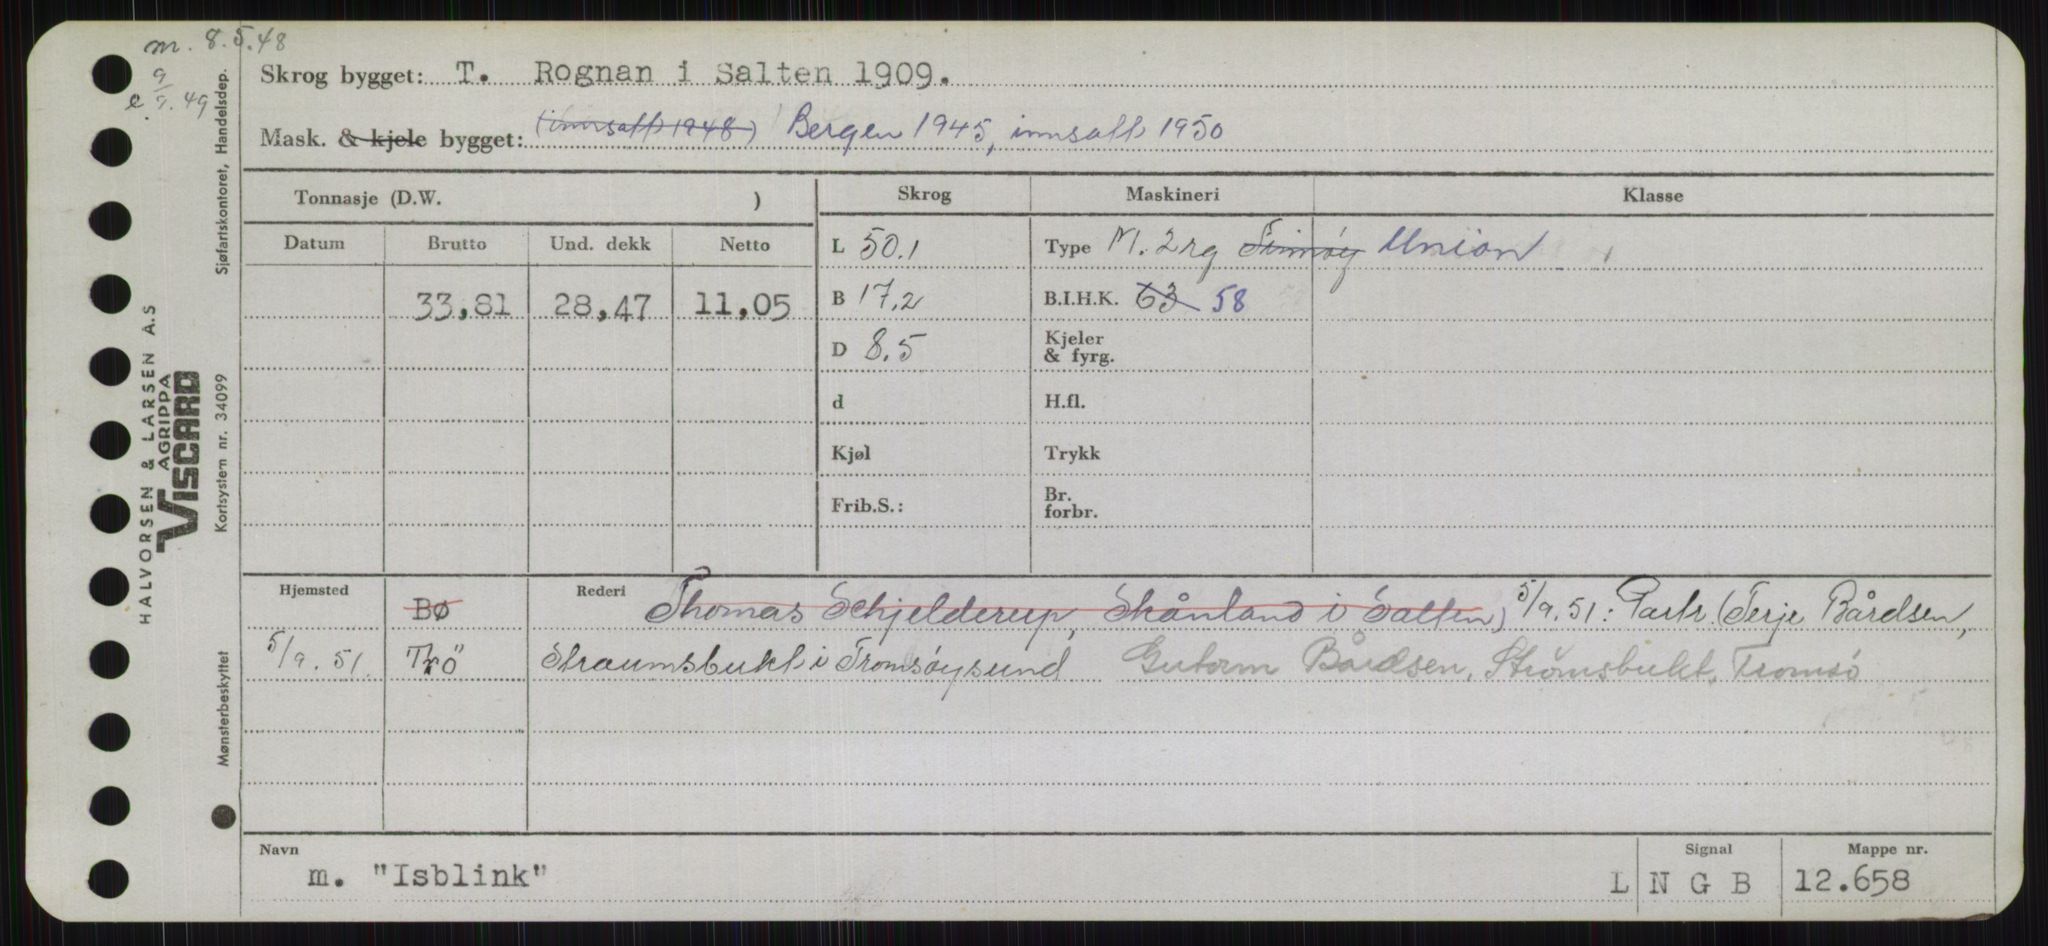 m. 8.5.48
e 9/9.49
Skrog bygget: T. Rognan i Salten 1909.
Mask. & kjele bygget: (innsatt 1948) Bergen 1945, innsatt 1950
Tonnasje (D.W. ) Skrog Maskineri Klasse
Datum Brutto Und. dekk Netto L 50.1 Type M. 2 rg Simøy Union
33,81 28,47 11,05 B 17,2 B.I.H.K. 63 58
D 8.5 Kjeler & fyrg.
d H.fl.
Kjøl Trykk
Frib.S.: Br. forbr.
Hjemsted Bø Rederi Thomas Schjelderup, Skånland i Salten, 5/9.51: Partr. (Terje Bårdsen,
5/9.51. Trö Straumsbukt i Tromsøysund Gutorm Bårdsen, Strømsbukt, Tromsø
Navn Signal Mappe nr.
m. "Isblink" L N G B 12.658
HALVORSEN & LARSEN A.S
AGRIPPA
VISCARD
Mønsterbeskyttet Kortsystem nr. 34099 Sjøfartskontoret, Handelsdep.